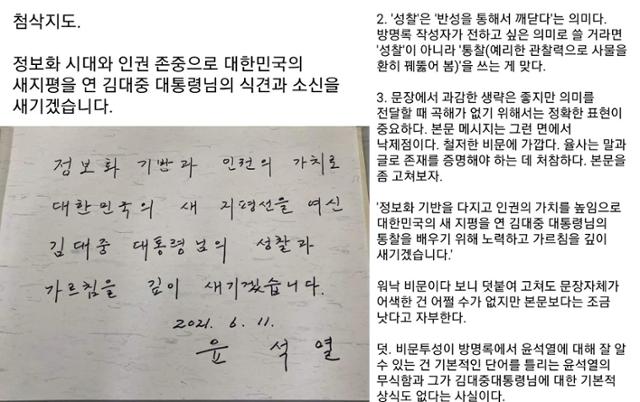 첨삭지도.
정보화 시대와 인권 존중으로 대한민국의
새지평을 연 김대중 대통령님의 식견과 소신을
새기겠습니다.
정보화 기반과 인권의 가치로
대한민국의 새 지평선을 여신
김대중 대통령님의 성찰과
가르침을 깊이 새기겠습니다.
2021. 6. 11.
윤석열
2. '성찰'은 '반성을 통해서 깨닫다'는 의미다.
방명록 작성자가 전하고 싶은 의미로 쓸 거라면
'성찰'이 아니라 '통찰(예리한 관찰력으로 사물을
환히 꿰뚫어 봄)'을 쓰는 게 맞다.
3. 문장에서 과감한 생략은 좋지만 의미를
전달할 때 곡해가 없기 위해서는 정확한 표현이
중요하다. 본문 메시지는 그런 면에서
낙제점이다. 철저한 비문에 가깝다. 율사는 말과
글로 존재를 증명해야 하는 데 처참하다. 본문을
좀 고쳐보자.
'정보화 기반을 다지고 인권의 가치를 높임으로
대한민국의 새 지평을 연 김대중 대통령님의
통찰을 배우기 위해 노력하고 가르침을 깊이
새기겠습니다.'
워낙 비문이다 보니 덧붙여 고쳐도 문장자체가
어색한 건 어쩔 수가 없지만 본문보다는 조금
낫다고 자부한다.
덧. 비문투성이 방명록에서 윤석열에 대해 잘 알
수 있는 건 기본적인 단어를 틀리는 윤석열의
무식함과 그가 김대중대통령님에 대한 기본적
상식도 없다는 사실이다.